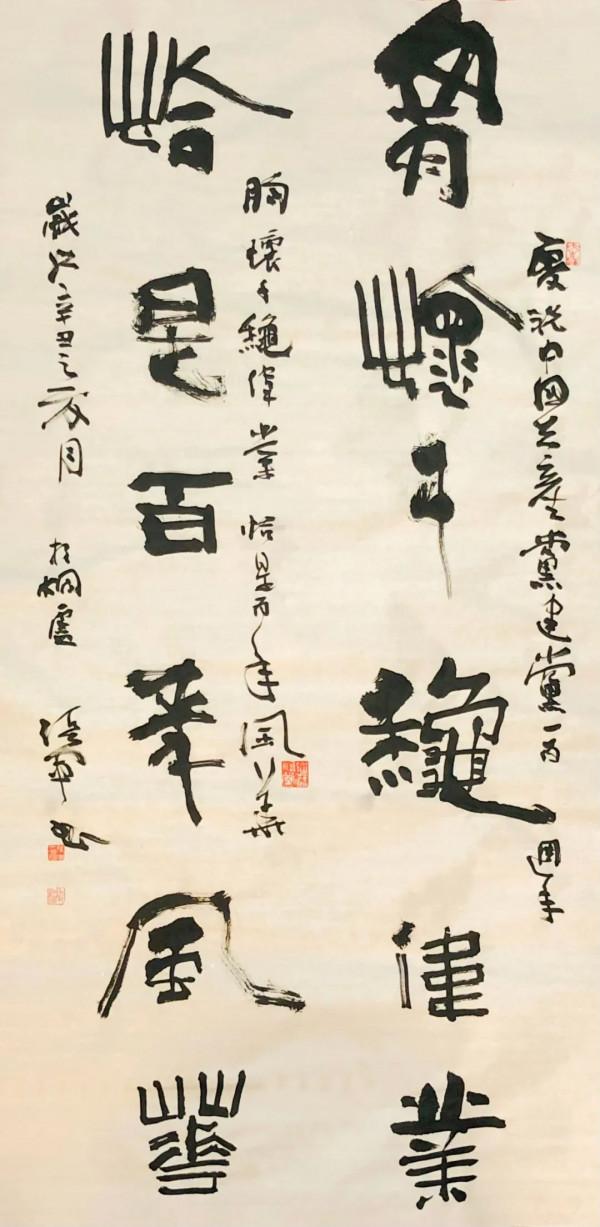 慶祝中國共產黨建黨一百週年
胸懷千龝偉業
胸懷千龝偉業 恰是百年風華
恰是百年風華
歲次辛丑之月 於桐廬 書